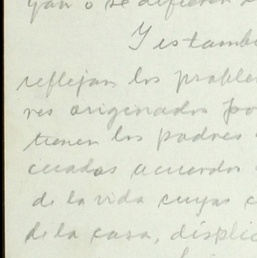 yan o se difieren
Y es tambi
reflejan los proble
res originados po
tienen los padres
cuados acuerdos
de la vida cuyas c
de la casa, displi